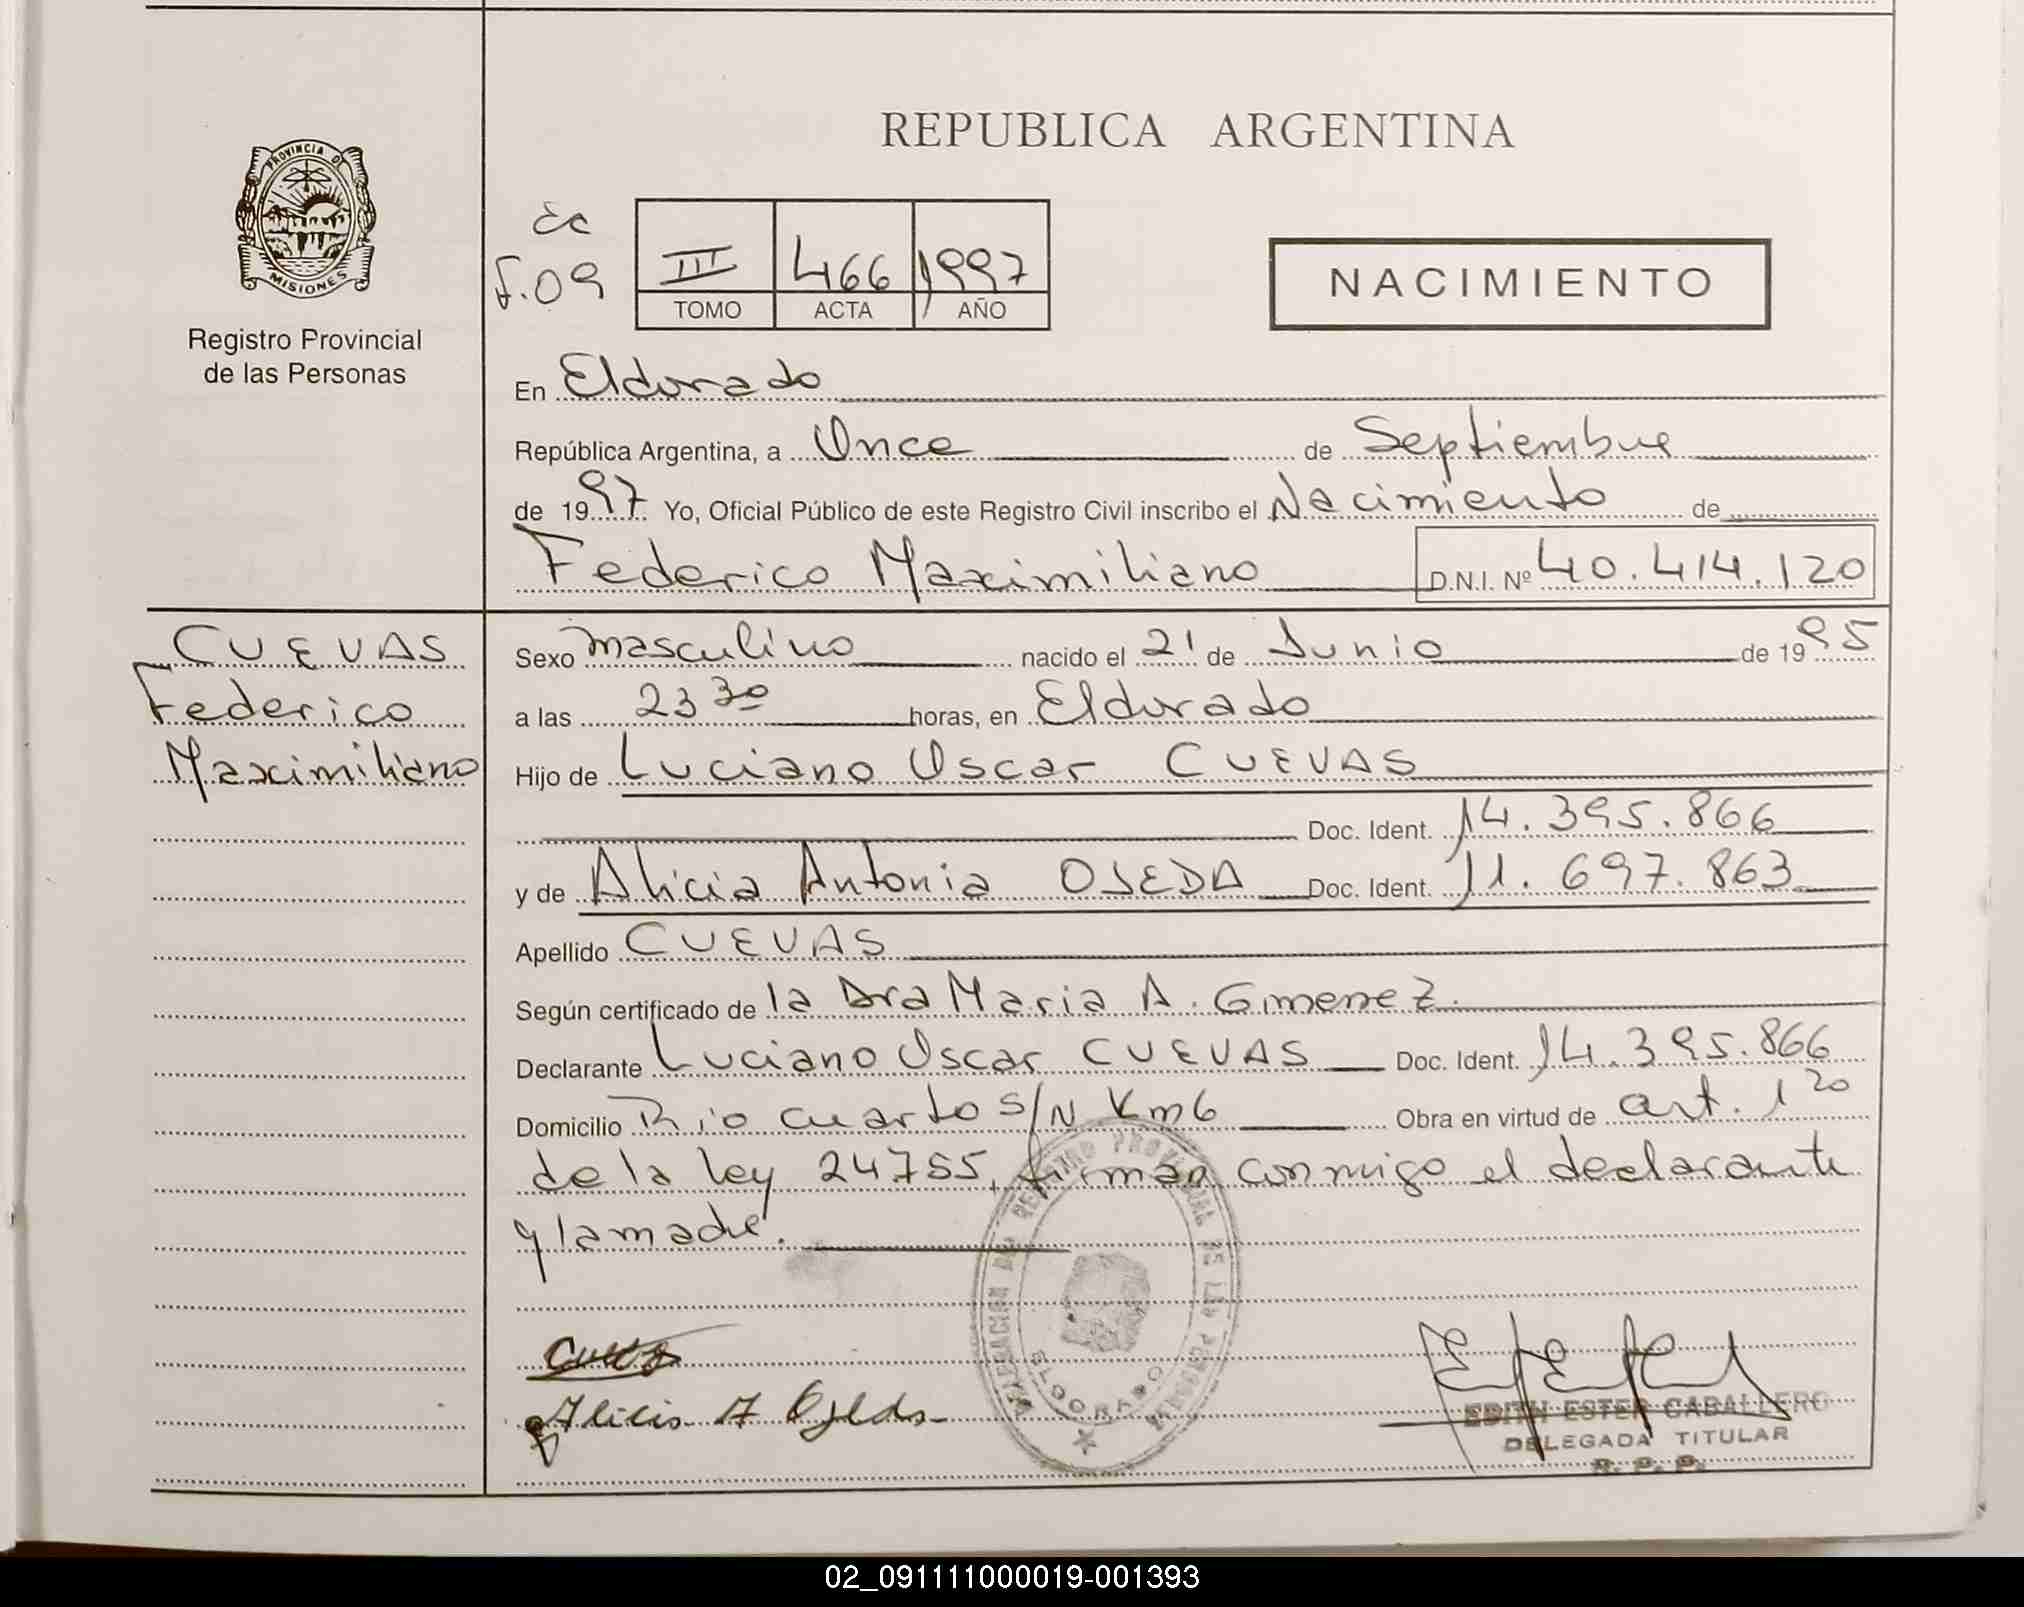 REPUBLICA ARGENTINA
PROVINCIA DE
MISIONES
Registro Provincial
de las Personas
III 466 1997
TOMO ACTA AÑO
F.09
NACIMIENTO
En Eldorado
República Argentina, a Once de Septiembre
de 1997 Yo, Oficial Público de este Registro Civil inscribo el Nacimiento de
Federico Maximiliano D.N.I. Nº 40.414.120
CUEVAS
Federico
Maximiliano
Sexo masculino nacido el 21 de Junio de 1995
a las 23 30 horas, en Eldorado
Hijo de Luciano Oscar CUEVAS
Doc. Ident. 14.395.866
y de Alicia Antonia OJEDA Doc. Ident. 11.697.863
Apellido CUEVAS
Según certificado de la Dra Maria A. Gimenez.
Declarante Luciano Oscar CUEVAS Doc. Ident. 14.395.866
Domicilio Rio cuarto S/N Km6 Obra en virtud de art. 1º
de la ley 24755, firman conmigo el declarante
y la madre.
DELEGACION DEL REGISTRO PROVINCIAL DE LAS PERSONAS
ELDORADO
Alicia A Ojeda
EDITH ESTER CABALLERO
DELEGADA TITULAR
R. P. P.
02_091111000019-001393